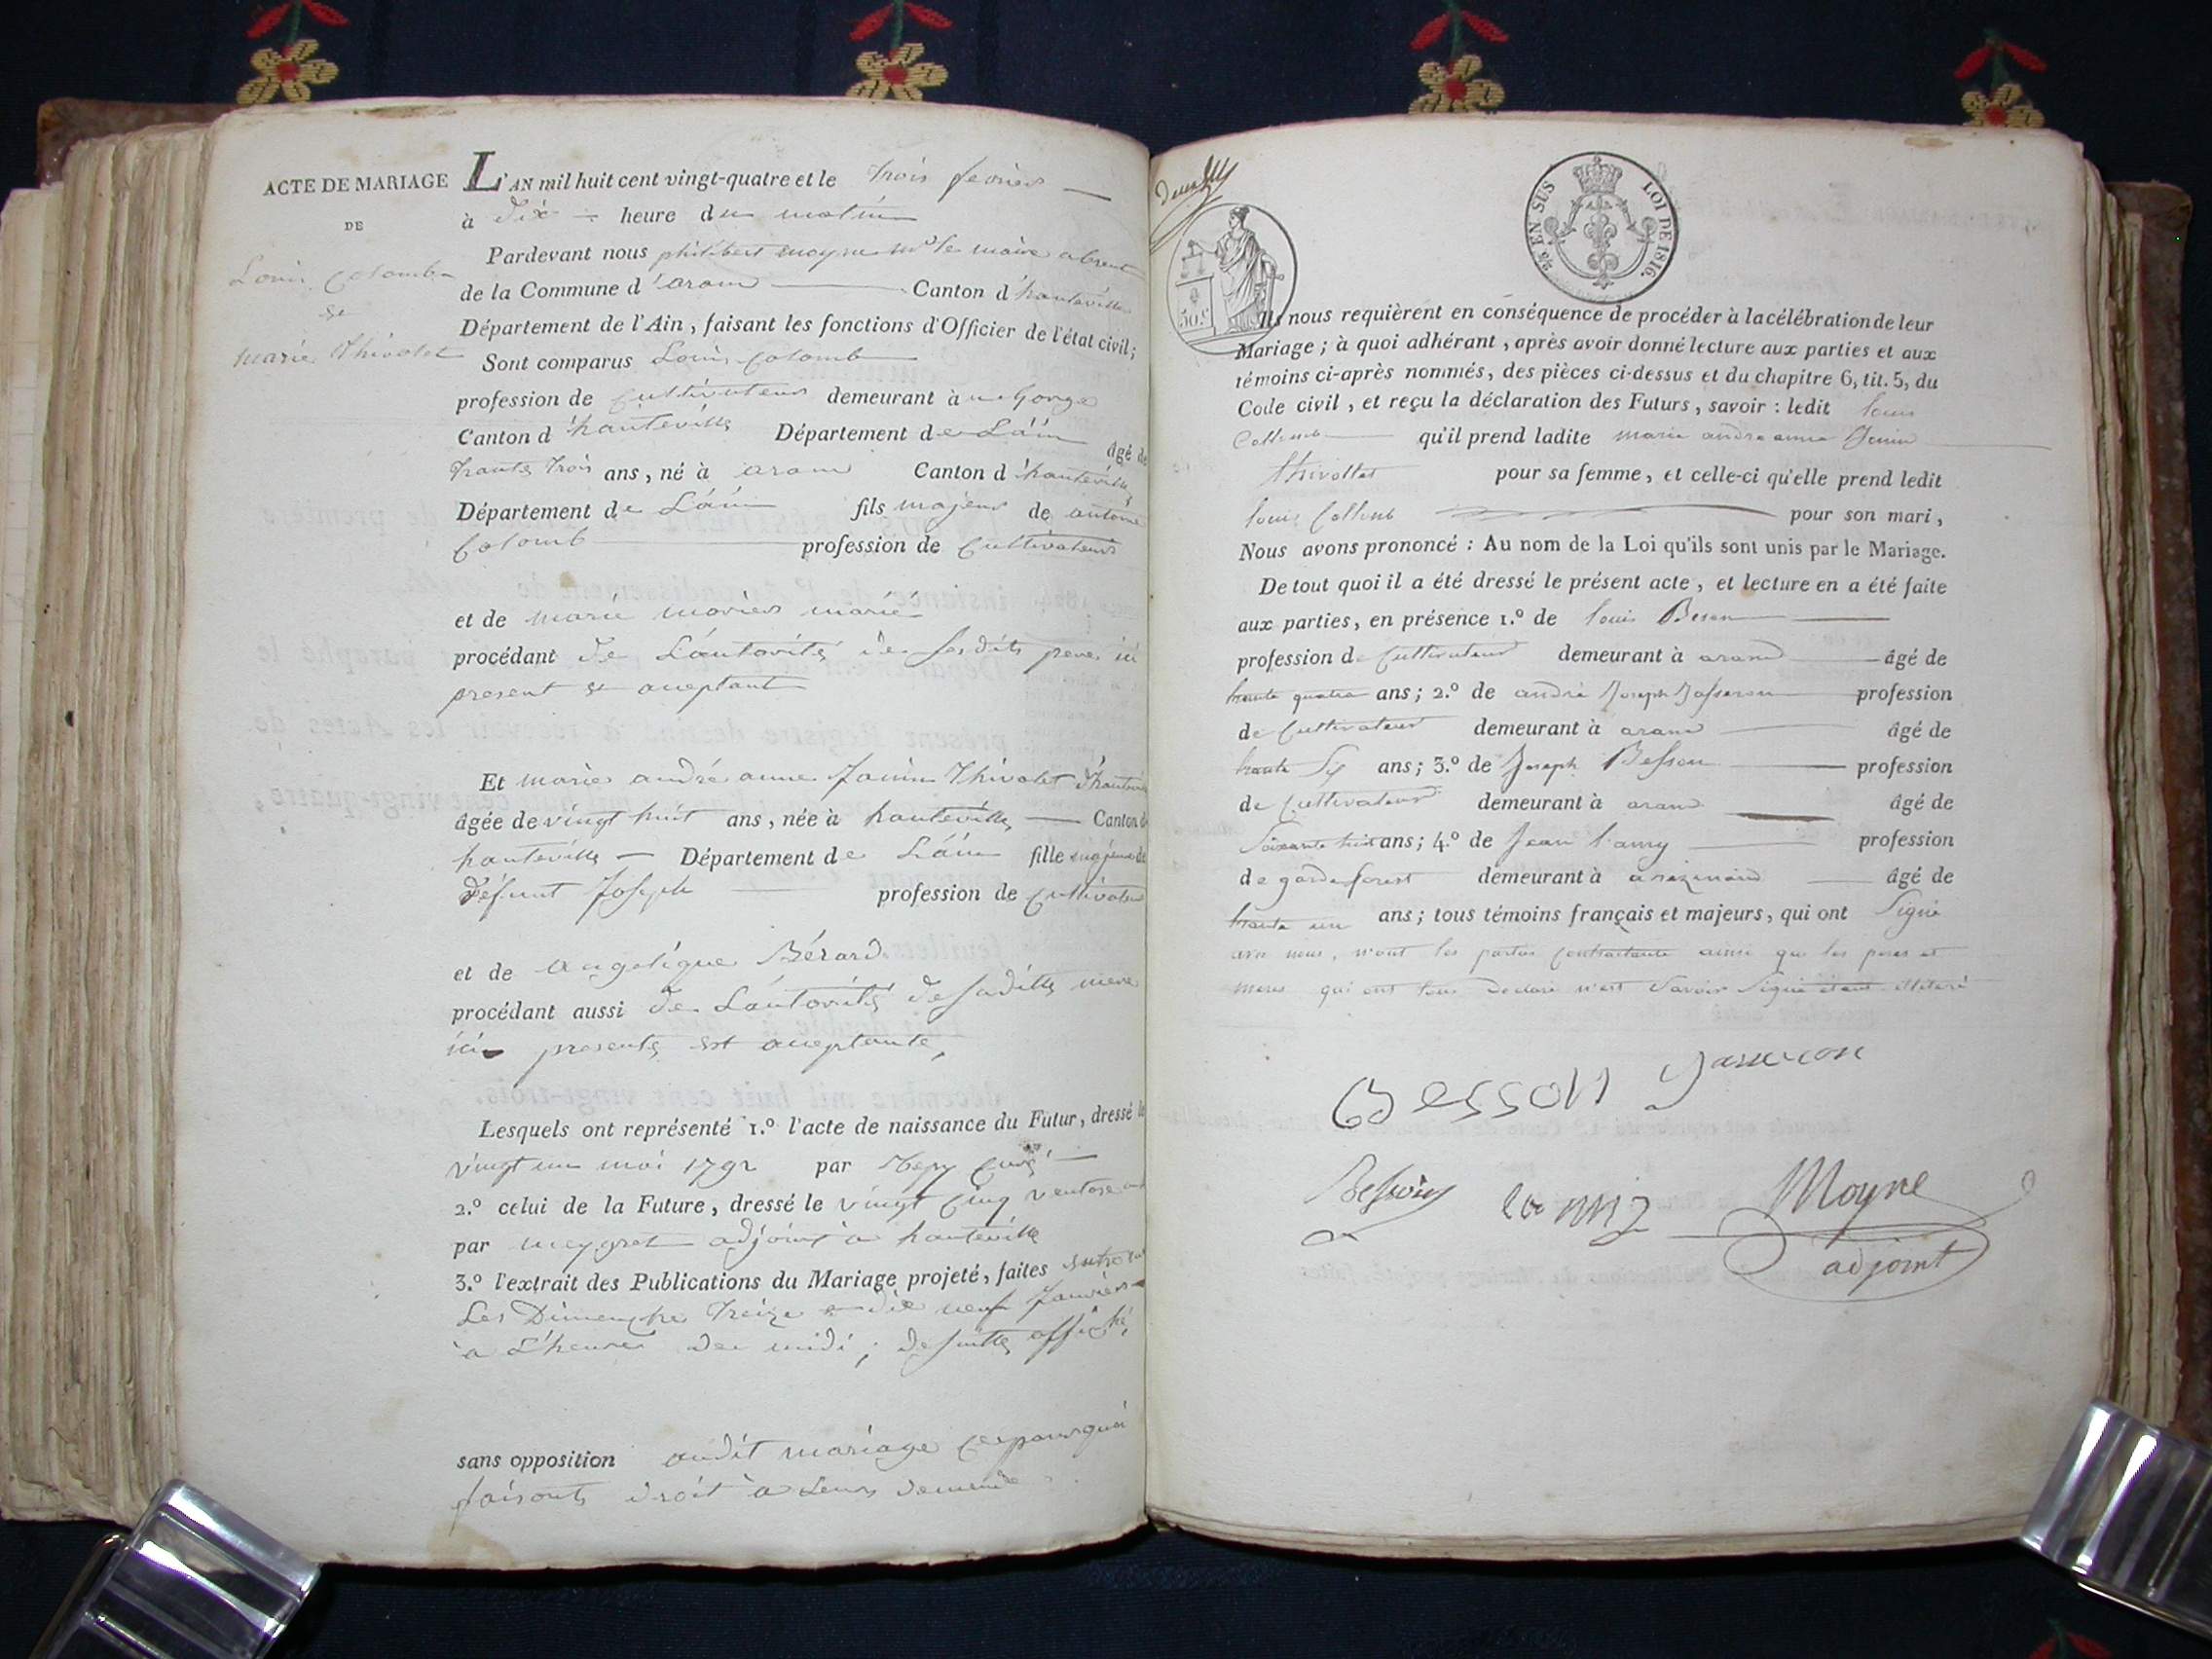 ACTE DE MARIAGE
DE
Louis Colomb
et
marie thivolet
L'AN mil huit cent vingt-quatre et le trois fevrier
à dix heure du matin
Pardevant nous philibert moyne mr le maire absent
de la Commune d'aran Canton d'hauteville
Département de l'Ain, faisant les fonctions d'Officier de l'état civil;
Sont comparus Louis Colomb
profession de Cultivateur demeurant à
Canton d'hauteville Département de Láin âgé de
trante trois ans, né à aran Canton d'hauteville
Département de Láin fils majeur de antoine
Colomb profession de Cultivateur
et de marie marié
procédant de Láutorité de ses dits peres ici
present et aceptant
Et marie andré anne Janin Thivolet d'hauteville
âgée de vingt huit ans, née à hauteville Canton d
hauteville Département de Láin fille majeur de
défunt Joseph profession de Cultivateur
et de angelique Bérard
procédant aussi de Láutorité de sa ditte mere
ici presente et aceptante,
Lesquels ont représenté 1.º l'acte de naissance du Futur, dressé le
vingt un mai 1792 par curé
2.º celui de la Future, dressé le vingt cinq ventose
par meygret adjoint a hauteville
3.º l'extrait des Publications du Mariage projeté, faites
Les Dimenche treize et dix neuf Janvier
a L'heure de midi; de suitte affiché,
sans opposition audit mariage ce pourquoi
faisont droit a Leur demende
50.c
2/2 EN SUS LOI DE 1816.
Ils nous requièrent en conséquence de procéder à la célébration de leur
Mariage; à quoi adhérant, après avoir donné lecture aux parties et aux
témoins ci-après nommés, des pièces ci-dessus et du chapitre 6, tit. 5, du
Code civil, et reçu la déclaration des Futurs, savoir: ledit louis
Collomb qu'il prend ladite marie andre anne Jenin
thivollet pour sa femme, et celle-ci qu'elle prend ledit
louis Collomb pour son mari,
Nous avons prononcé: Au nom de la Loi qu'ils sont unis par le Mariage.
De tout quoi il a été dressé le présent acte, et lecture en a été faite
aux parties, en présence 1.º de louis Beson
profession de Cultivateur demeurant à aran âgé de
trante quatre ans; 2.º de andré Joseph Jasseron profession
de Cultivateur demeurant à aran âgé de
trante six ans; 3.º de Joseph Besson profession
de Cultivateur demeurant à aran âgé de
Soixante huit ans; 4.º de Jean lamy profession
de garde forest demeurant à âgé de
trante un ans; tous témoins français et majeurs, qui ont signé
avec nous, n'ont les parties contractante ainsi que les peres et
meres qui ont tous declaré n'est savoir signé étant illiteré
Besson Jasseron
Besson lamy Moyne
adjoint